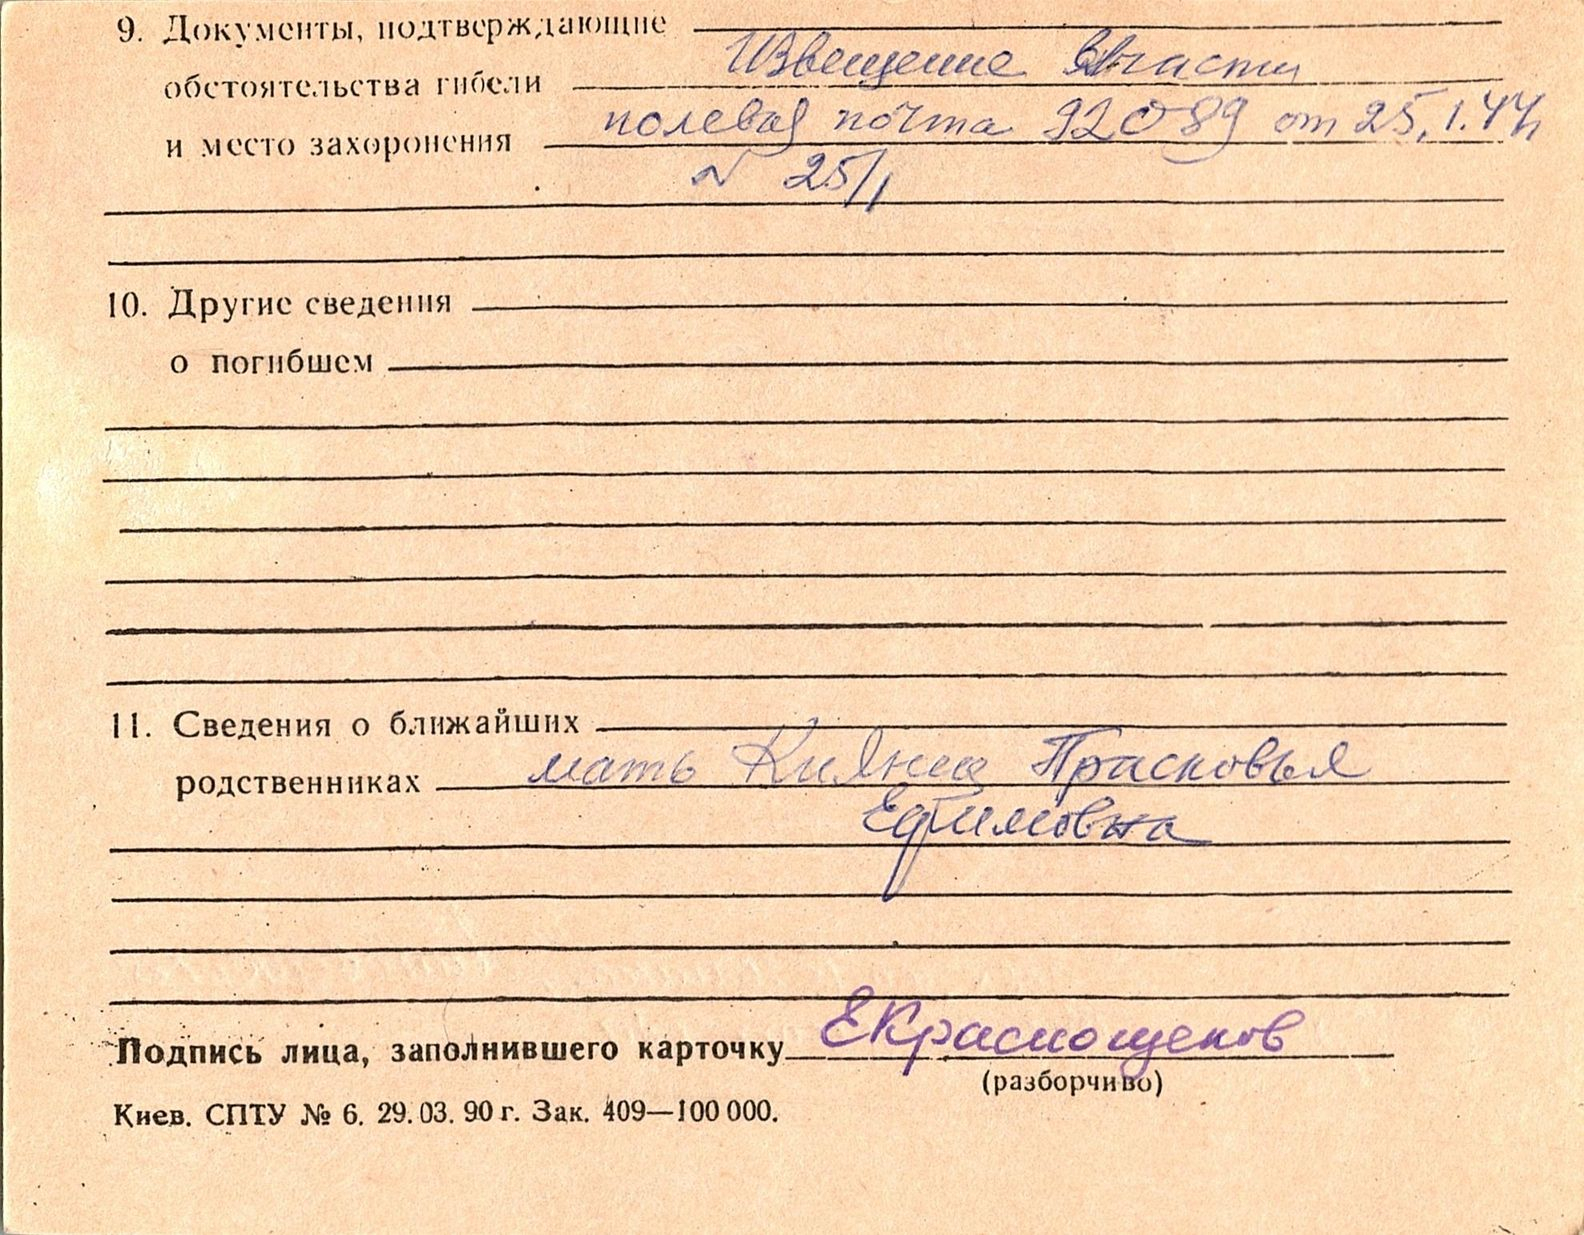 9. Документы, подтверждающие
Извещение в/части
обстоятельства гибели
полевая почта 92089 от 25.1.44г
и место захоронения
№ 25/1
10. Другие сведения
о погибшем
11. Сведения о ближайших
родственниках мать Кияница Прасковья
Ефимовна
Подпись лица, заполнившего карточку ЕКраснощеков
(разборчиво)
Киев. СПТУ № 6. 29.03.90 г. Зак. 409—100 000.